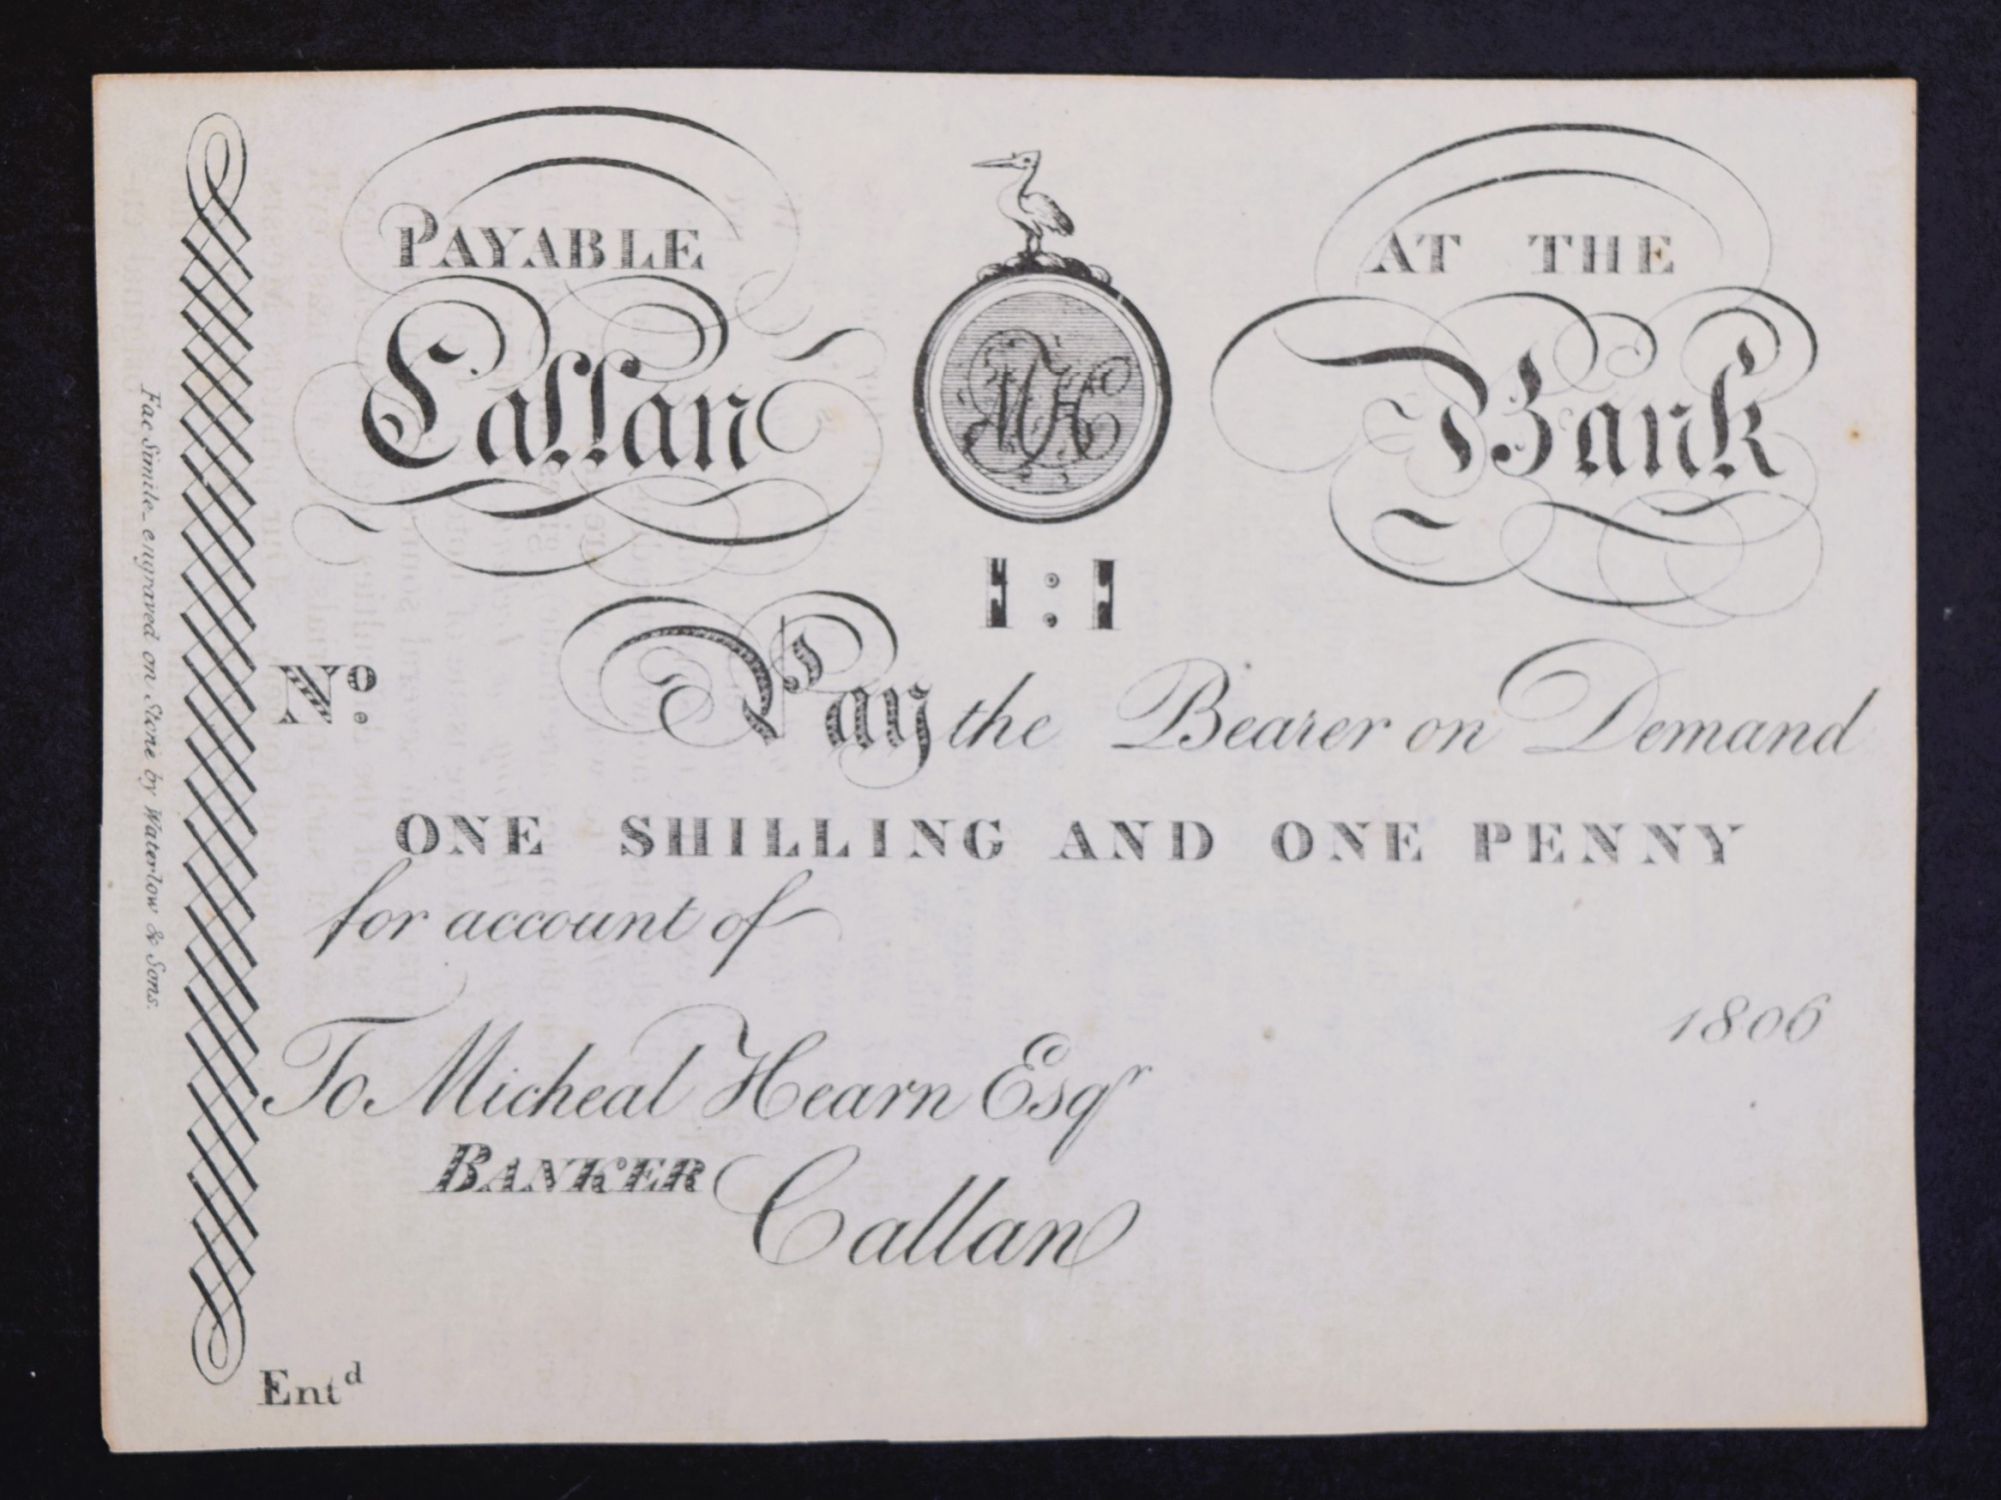 PAYABLE AT THE
Callan Bank
MH
1:1
No. Pay the Bearer on Demand
ONE SHILLING AND ONE PENNY
for account of
1806
To Micheal Hearn Esqr
BANKER
Callan
Entd
Fac Simile engraved on Stone by Waterlow & Sons.